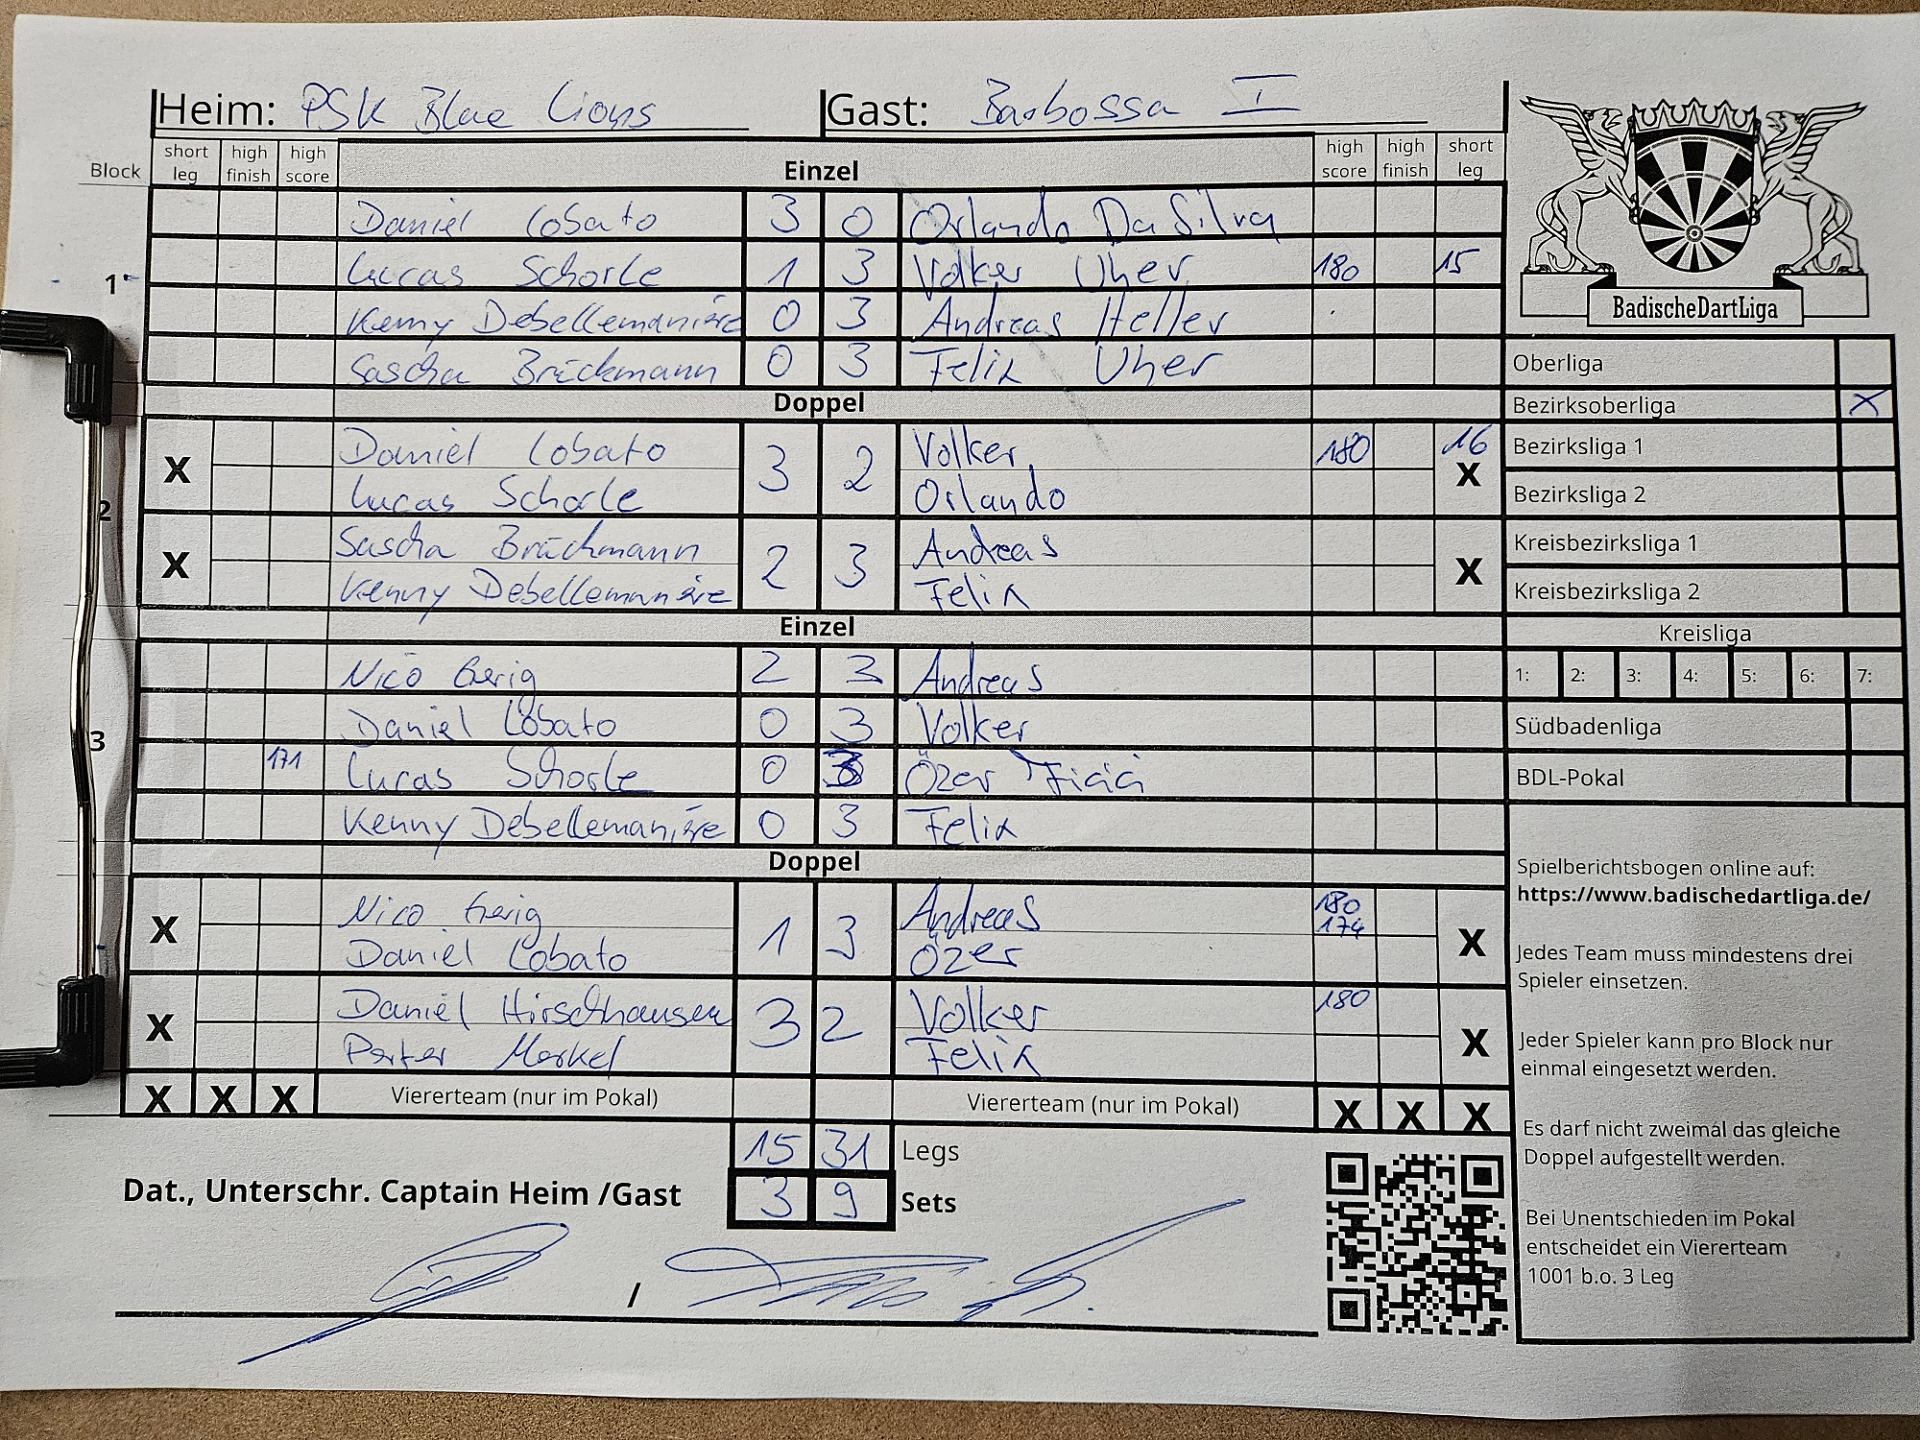 Heim: PSK Blue Lions Gast: Barbossa I
Block short leg high finish high score Einzel high score high finish short leg
Daniel Lobato 3 0 Orlando Da Silva
1 Lucas Schorle 1 3 Volker Uher 180 15
Kenny Debellemanière 0 3 Andreas Heller
Sascha Brückmann 0 3 Felix Uher
Doppel
Daniel Lobato 3 2 Volker 180 16
X Lucas Schorle Orlando X
2
Sascha Brückmann 2 3 Andreas
X Kenny Debellemanière Felix X
Einzel
Nico Gerig 2 3 Andreas
Daniel Lobato 0 3 Volker
3
171 Lucas Schorle 0 3 Özer Ficici
Kenny Debellemanière 0 3 Felix
Doppel
Nico Gerig 1 3 Andreas 180 174
X Daniel Lobato Özer X
Daniel Hirschhausen 3 2 Volker 180
X Merkel Felix X
X X X Viererteam (nur im Pokal) Viererteam (nur im Pokal) X X X
15 31 Legs
Dat., Unterschr. Captain Heim /Gast 3 9 Sets
/
BadischeDartLiga
Oberliga
Bezirksoberliga X
Bezirksliga 1
Bezirksliga 2
Kreisbezirksliga 1
Kreisbezirksliga 2
Kreisliga
1: 2: 3: 4: 5: 6: 7:
Südbadenliga
BDL-Pokal
Spielberichtsbogen online auf:
https://www.badischedartliga.de/
Jedes Team muss mindestens drei
Spieler einsetzen.
Jeder Spieler kann pro Block nur
einmal eingesetzt werden.
Es darf nicht zweimal das gleiche
Doppel aufgestellt werden.
Bei Unentschieden im Pokal
entscheidet ein Viererteam
1001 b.o. 3 Leg